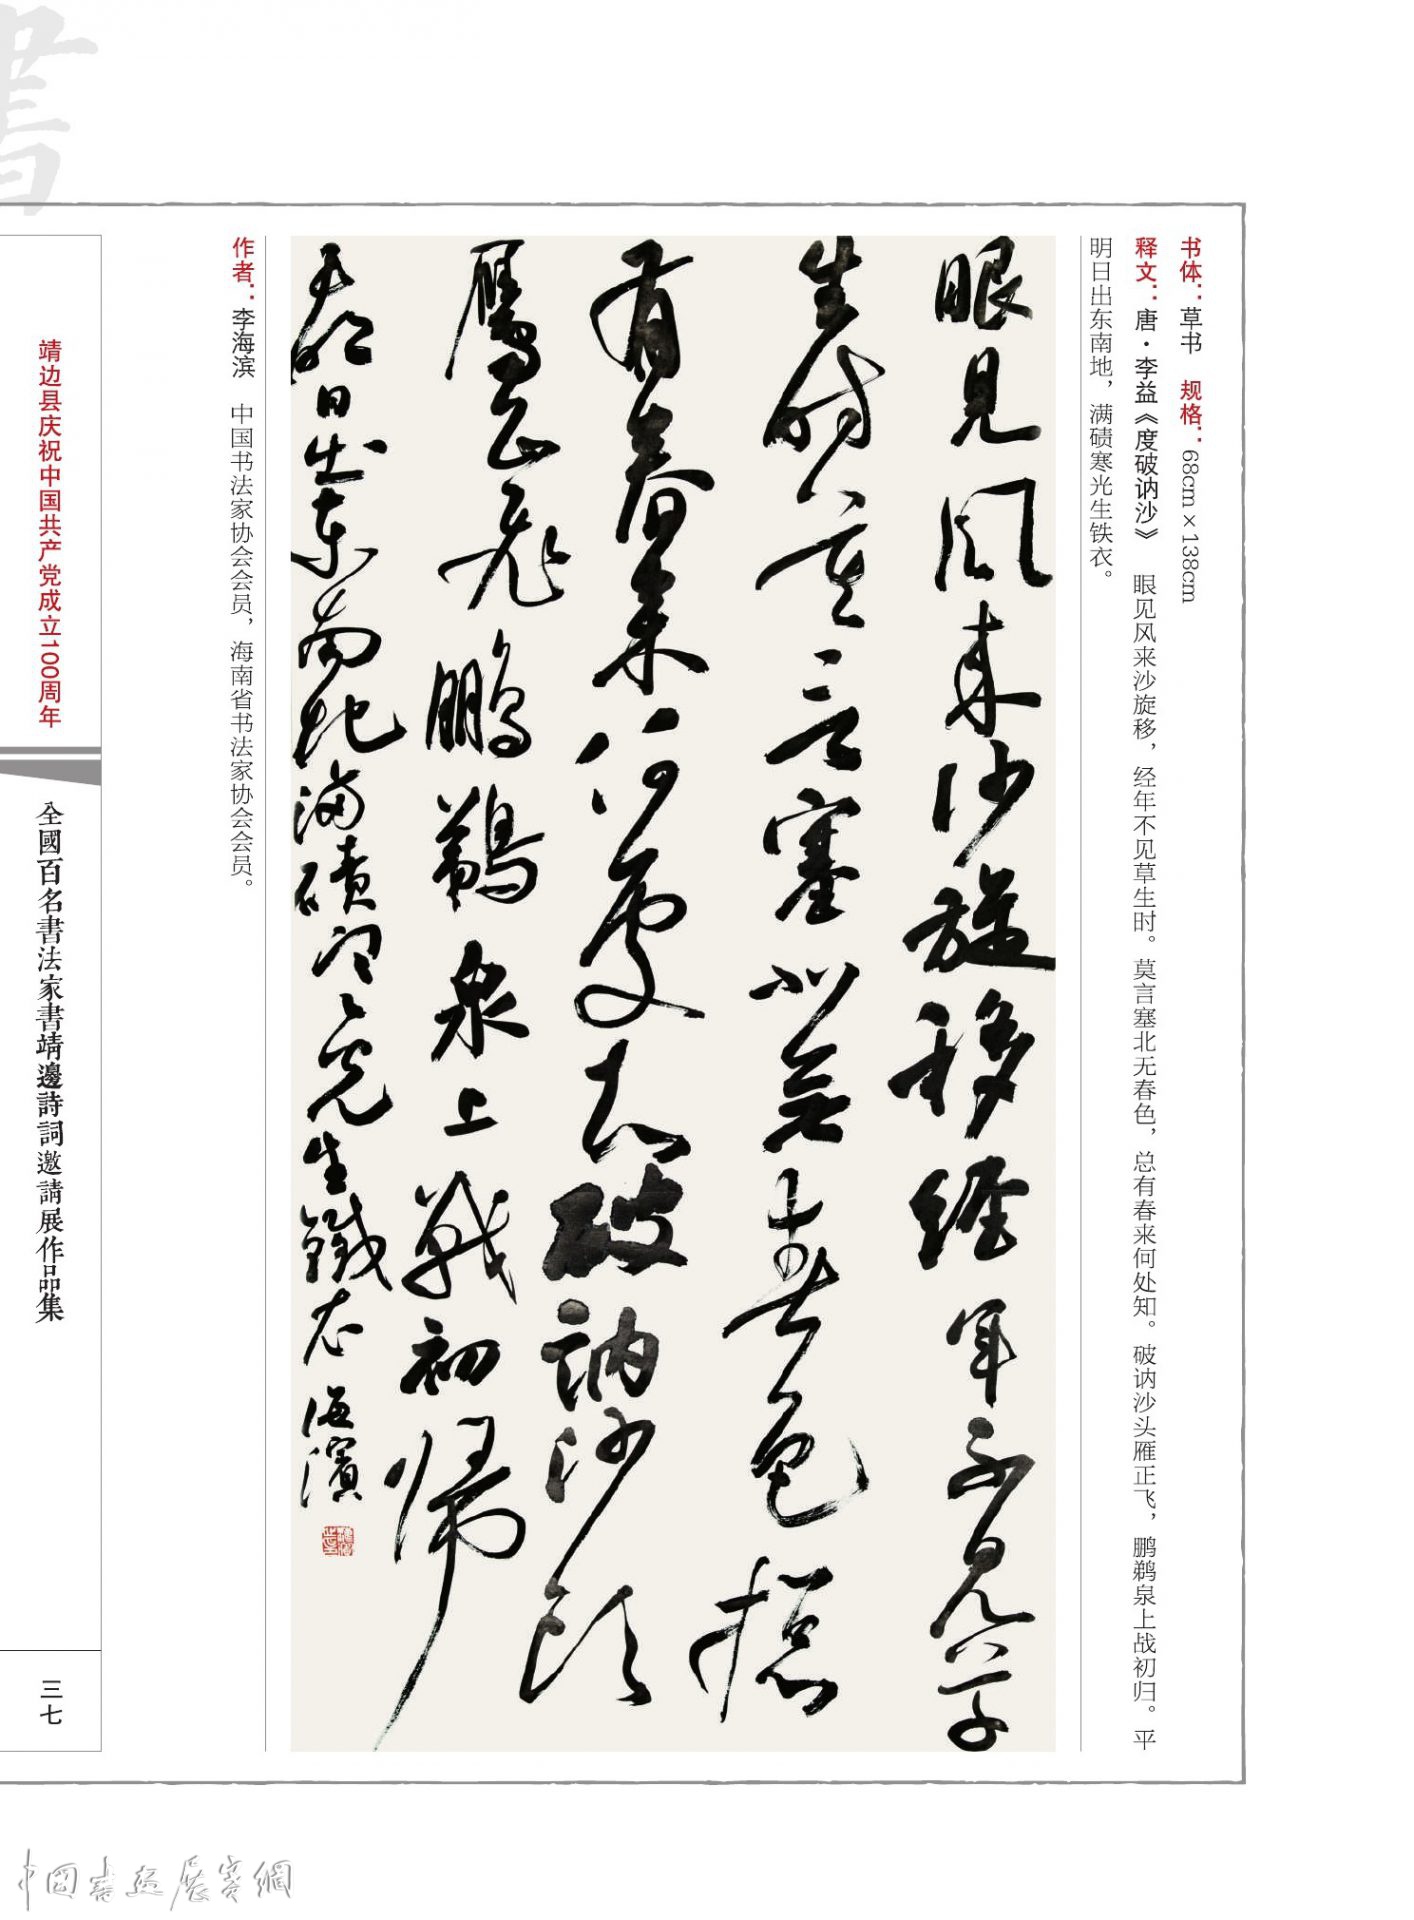 書
书体：草书　规格：68cm×138cm
释文：唐·李益《度破讷沙》　眼见风来沙旋移，经年不见草生时。莫言塞北无春色，总有春来何处知。破讷沙头雁正飞，鹏鹈泉上战初归。平
明日出东南地，满碛寒光生铁衣。
眼見風来沙旋移經年不見草
生時莫言塞北無春色總
有春来何處知破訥沙頭
雁正飛鵬鵜泉上戰初歸
平明日出東南地滿磧寒光生鐵衣　海濱
作者：李海滨　中国书法家协会会员，海南省书法家协会会员。
靖边县庆祝中国共产党成立100周年
全國百名書法家書靖邊詩詞邀請展作品集
三七
中國書畫展賽網